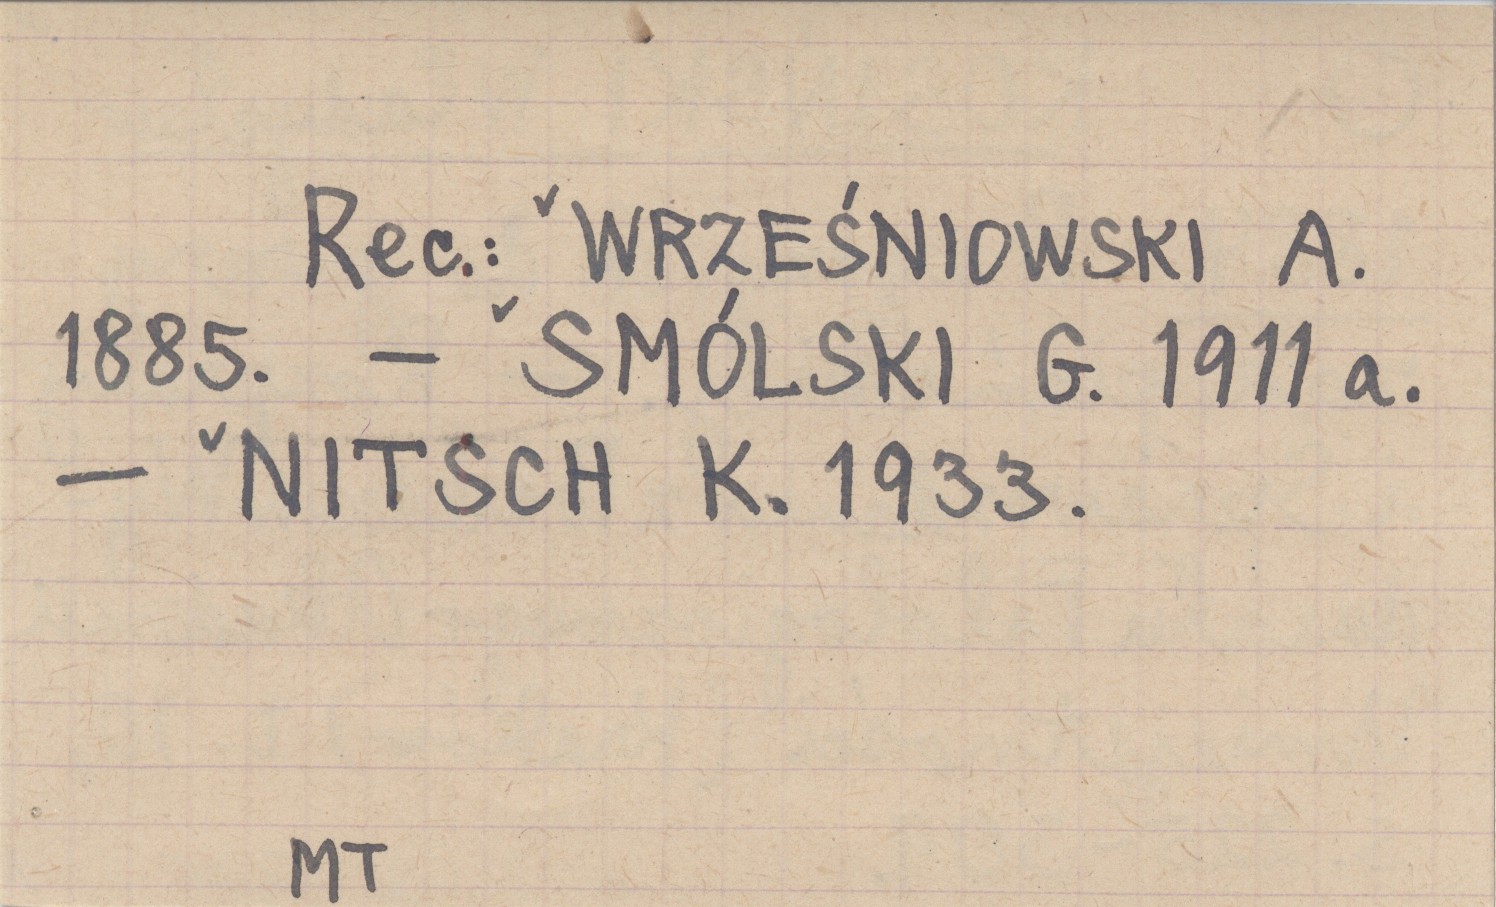 Rec.: ✓WRZEŚNIOWSKI A.
1885. — ✓SMÓLSKI G. 1911 a.
— ✓NITSCH K. 1933.
MT